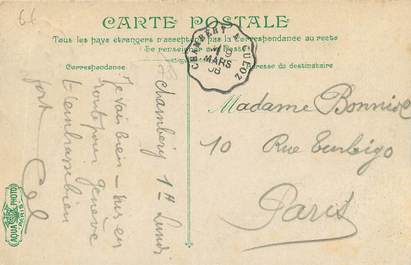 66
CARTE POSTALE
Tous les pays étrangers n'acceptent pas la Correspondance au recto
Se renseigner à la Poste
Correspondance
Adresse du destinataire
MARS
08
Chambéry 1H Lundi
Je vais bien - suis en
route pour Genève
t'embrasse bien
fort
Madame Bonniol
10 Rue Turbigo
Paris
AQUA PHOTO
PARIS